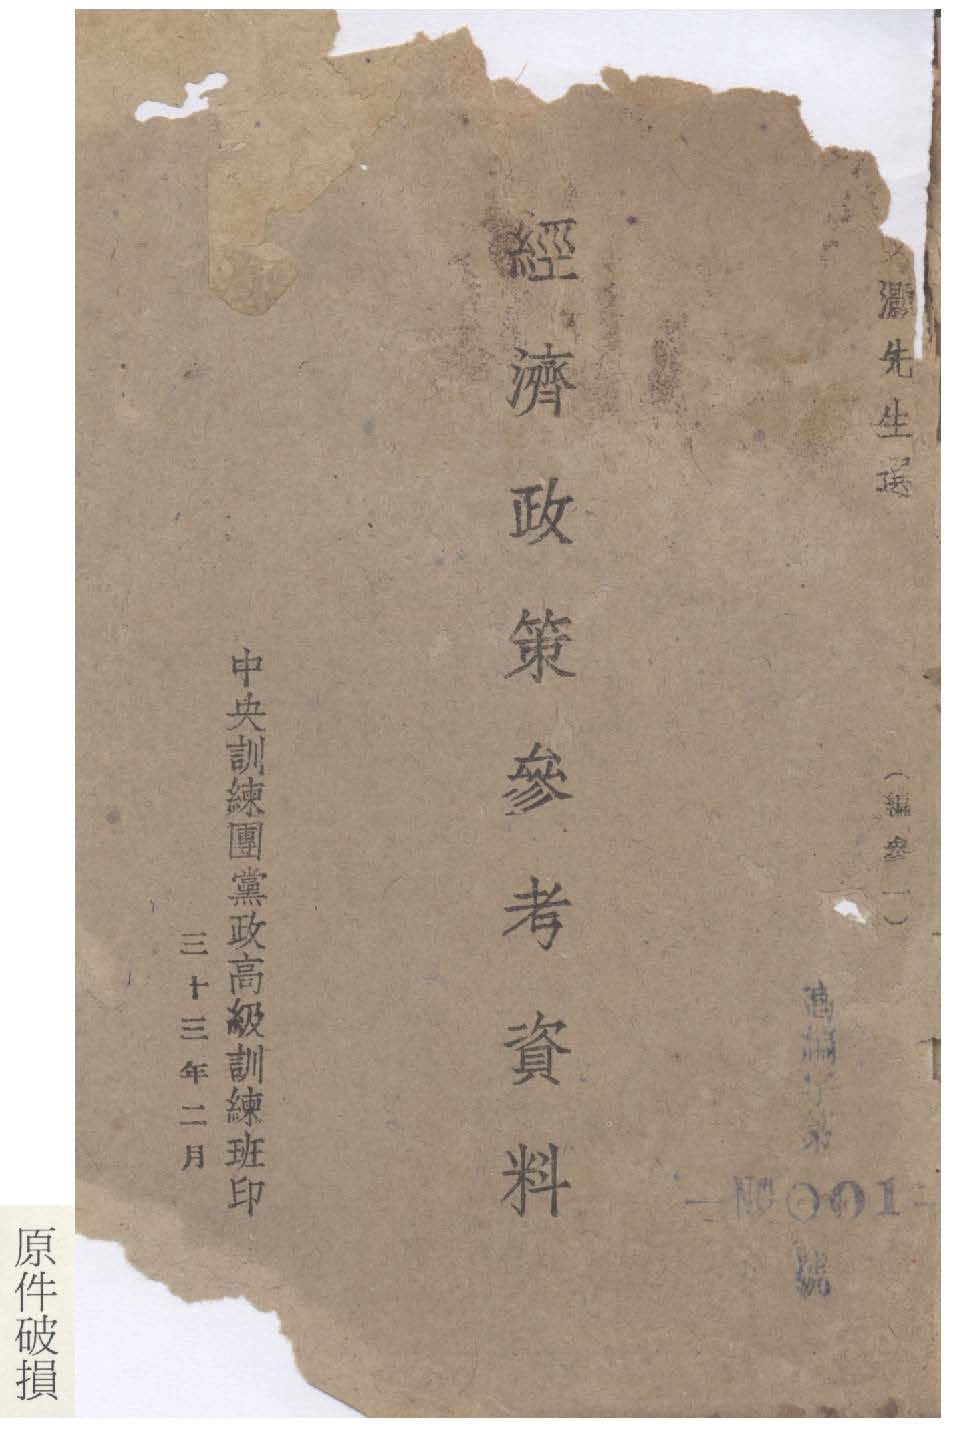 灝先生選
(編參一)
高編字第
NO 001
號
經濟政策參考資料
中央訓練團黨政高級訓練班印
三十三年二月
原件破損